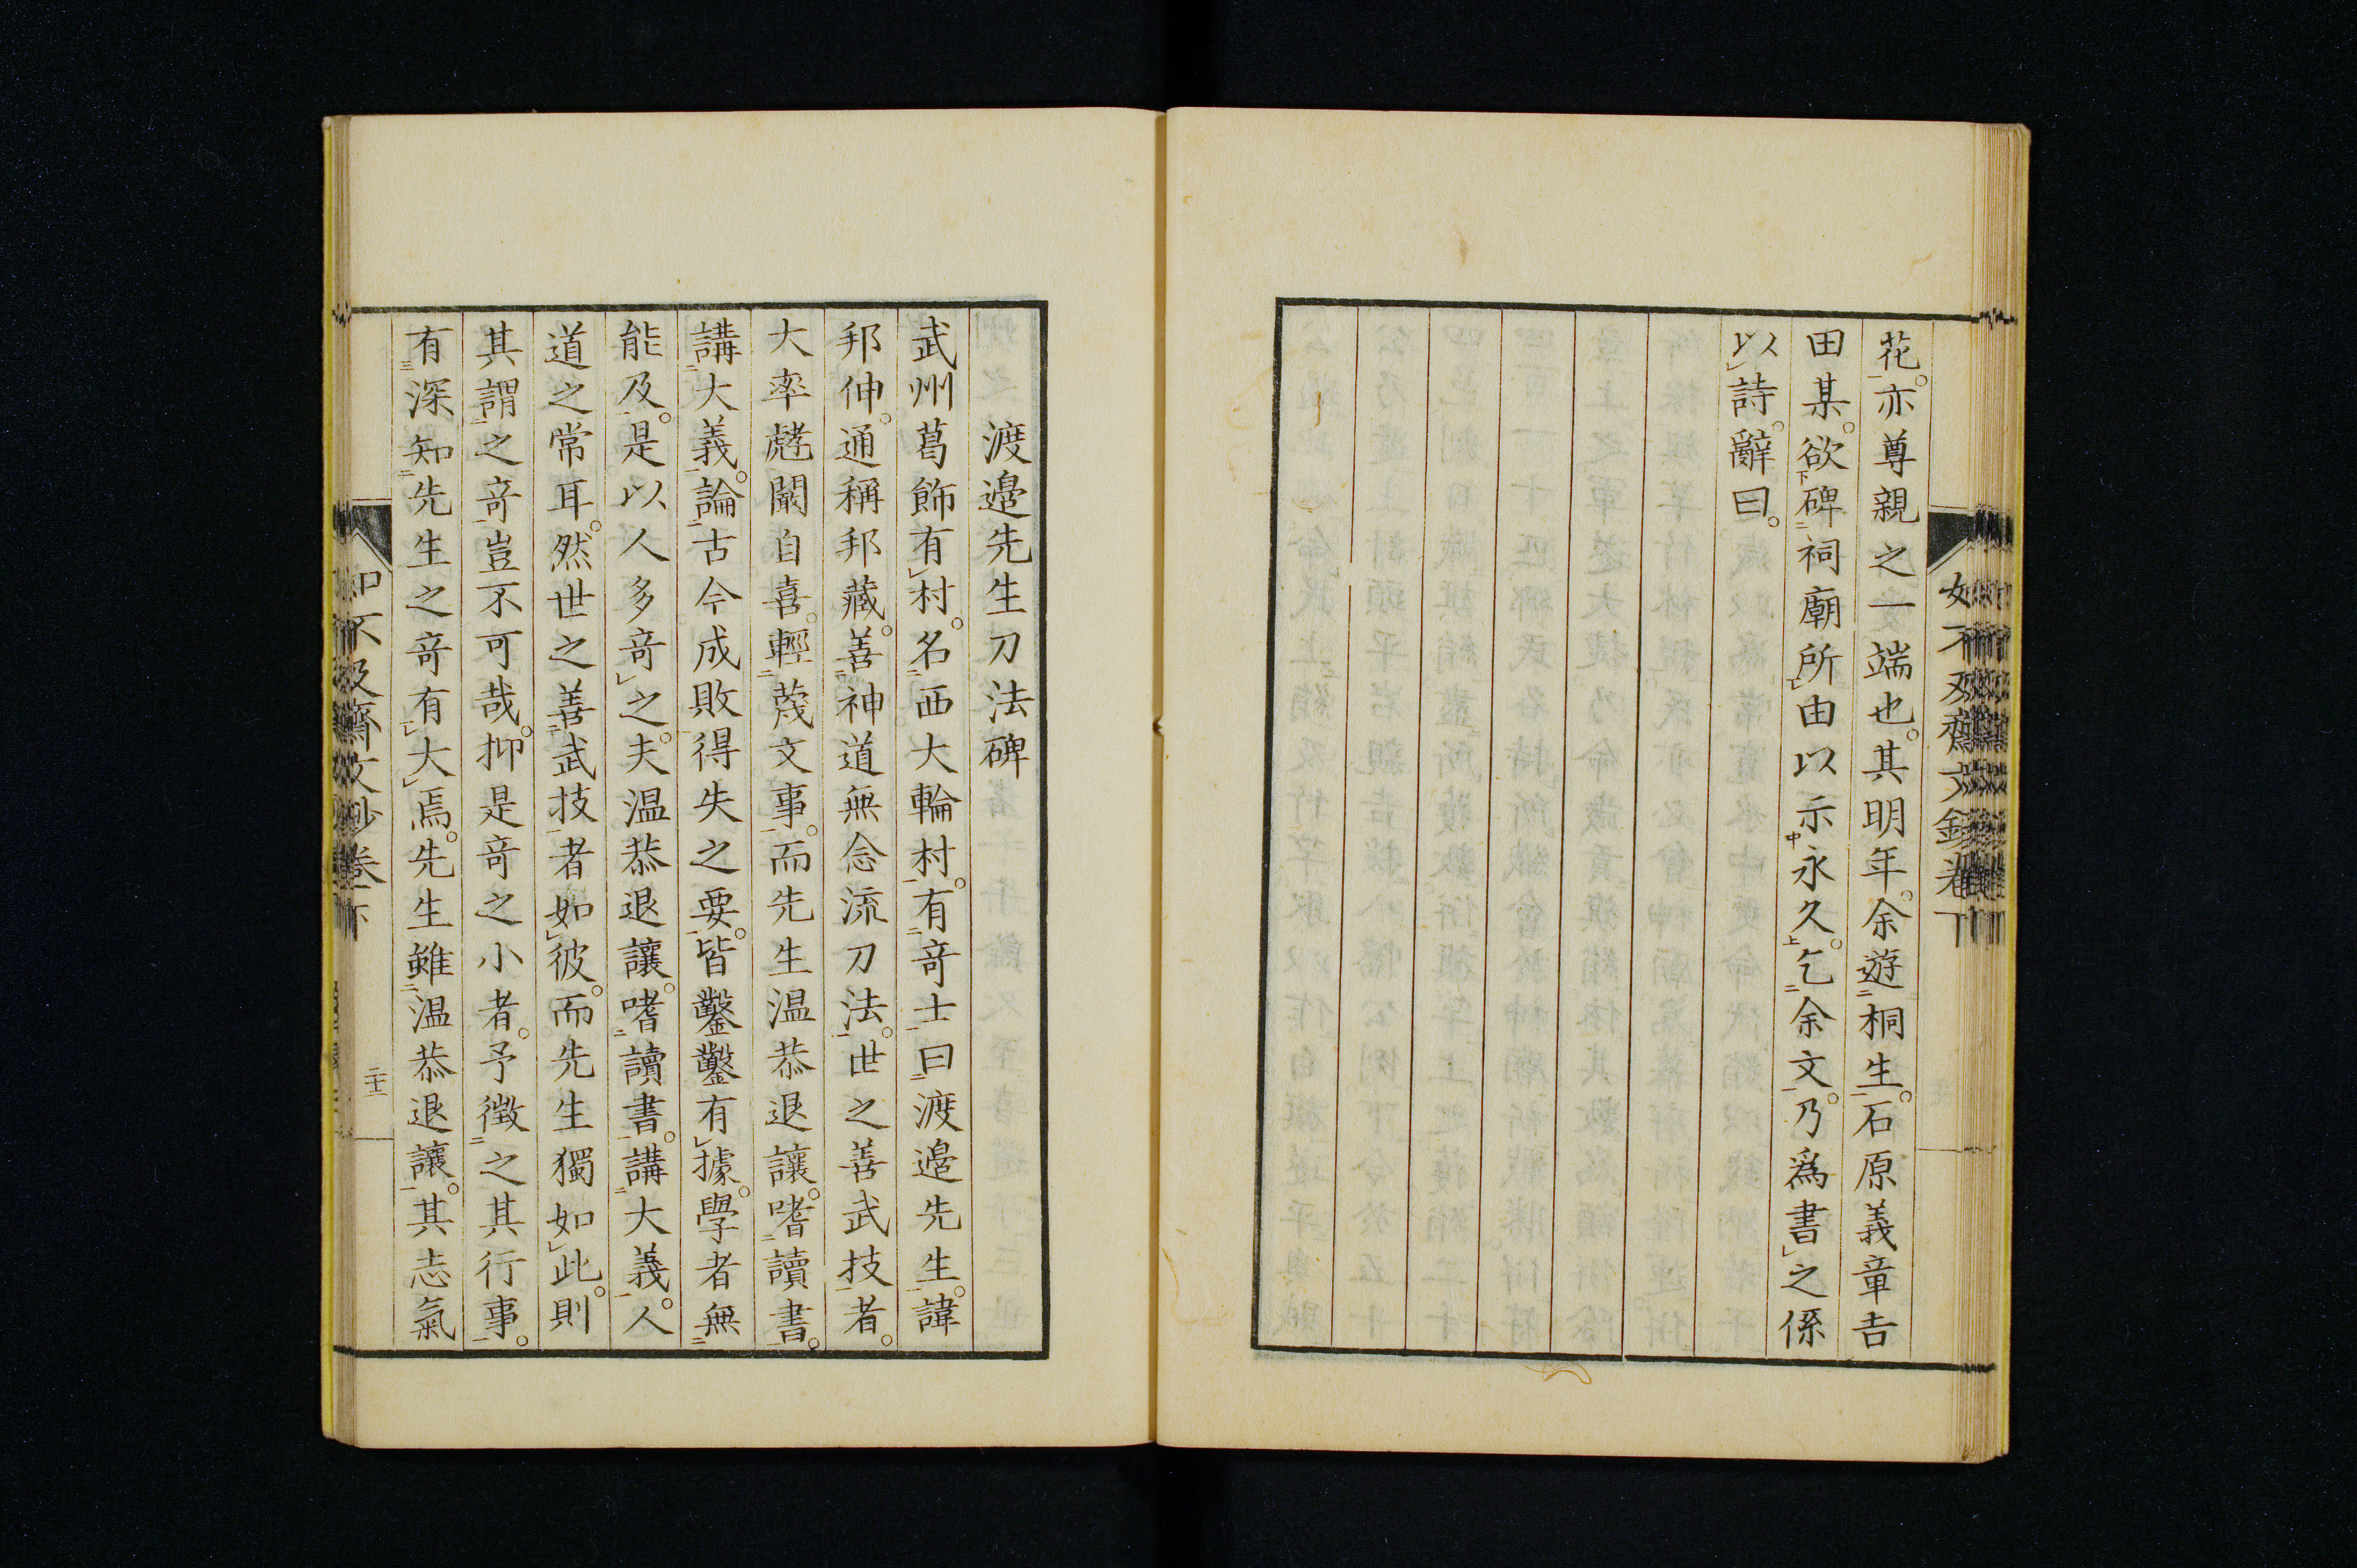 花。亦尊親之一端也。其明年。余遊桐生。石原義章吉
田某。欲碑祠廟所由以示永久。乞余文。乃爲書之係
以詩。辭曰。
渡邉先生刀法碑
武州葛飾有村。名西大輪村。有竒士曰渡邉先生。諱
邦伸。通稱邦藏。善神道無念流刀法。世之善武技者。
大率虣闞自喜。輕蔑文事。而先生温恭退讓。嗜讀書。
講大義。論古今成敗得失之要。皆鑿鑿有據。學者無
能及。是以人多竒之。夫温恭退讓。嗜讀書。講大義。人
道之常耳。然世之善武技者如彼。而先生獨如此。則
其謂之竒豈不可哉。抑是竒之小者。予徴之其行事。
有深知先生之竒有大焉。先生雖温恭退讓。其志氣
如不及齋文鈔卷下
二十三